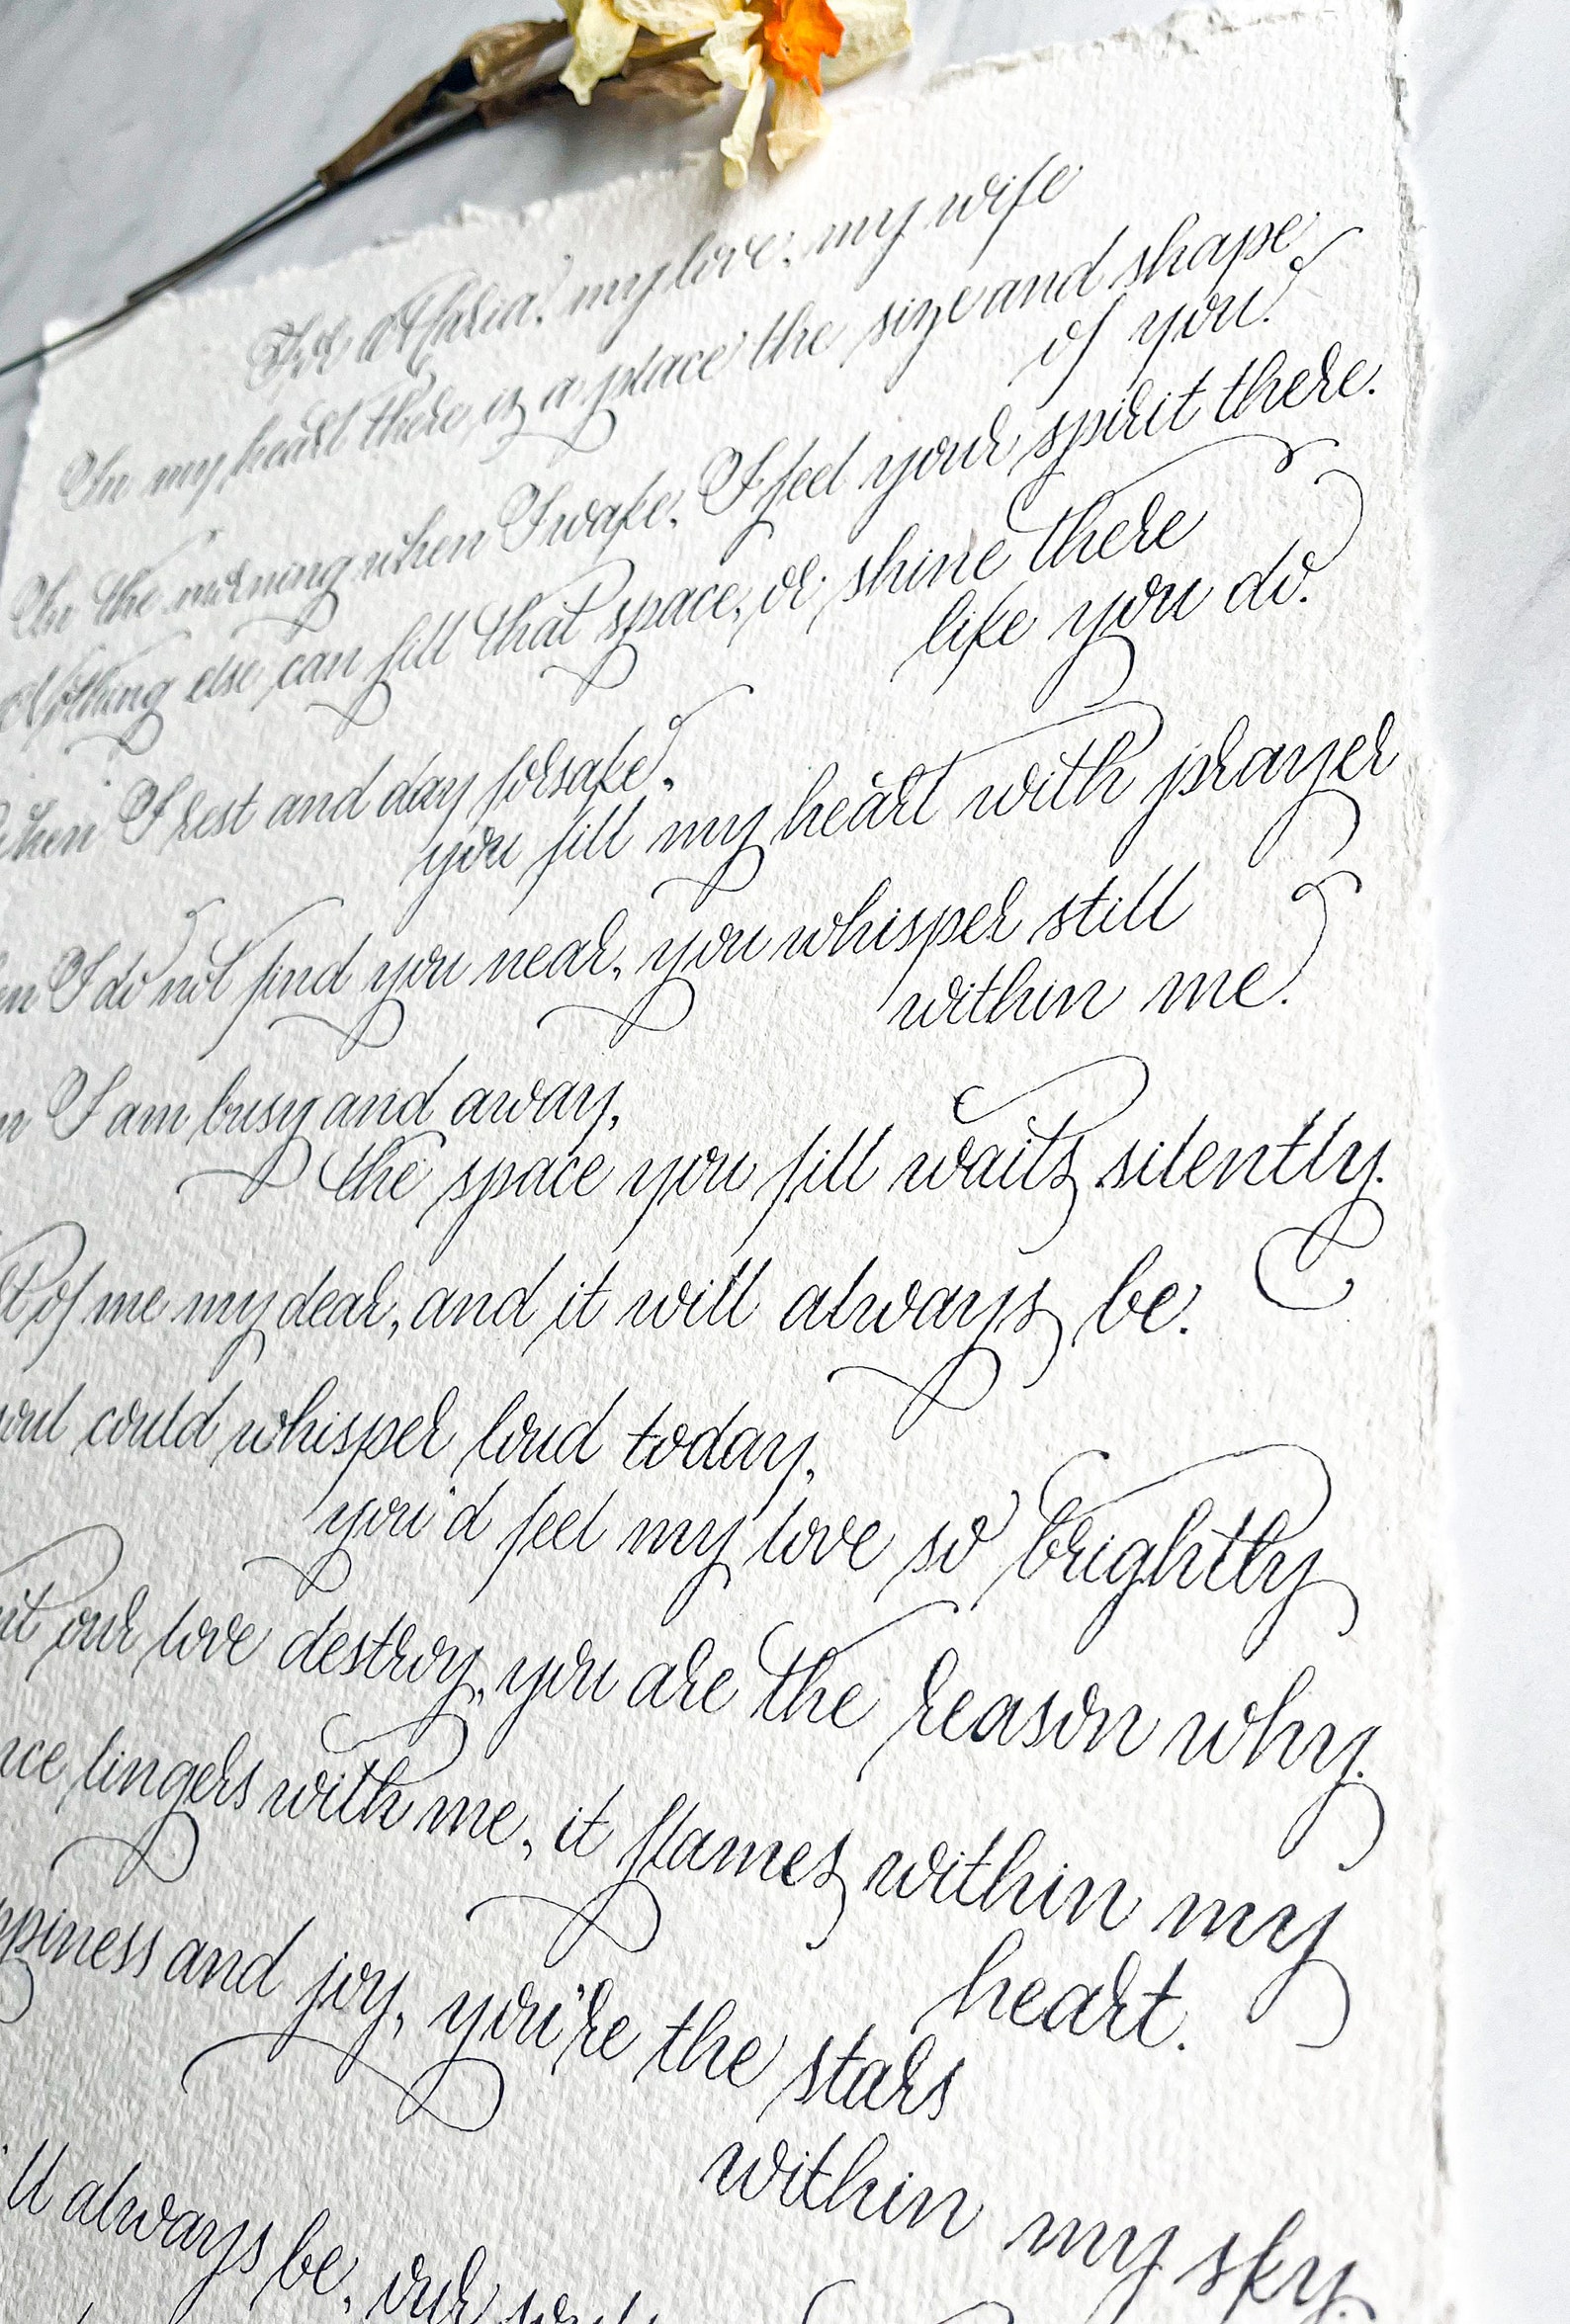 For Maria, my love, my wife
In my heart there is a place the size and shape
of you.
In the morning when I wake, I feel your spirit there.
Nothing else can fill that space, or shine there
like you do.
when I rest and day forsake,
you fill my heart with prayer
I do not find you near, you whisper still
within me.
I am busy and away,
the space you fill waits silently.
of me my dear, and it will always be.
could whisper loud today,
you'd feel my love so brightly
our love destroy, you are the reason why.
lingers with me, it flames within my
heart.
and joy, you're the stars
within my sky.
always be, our